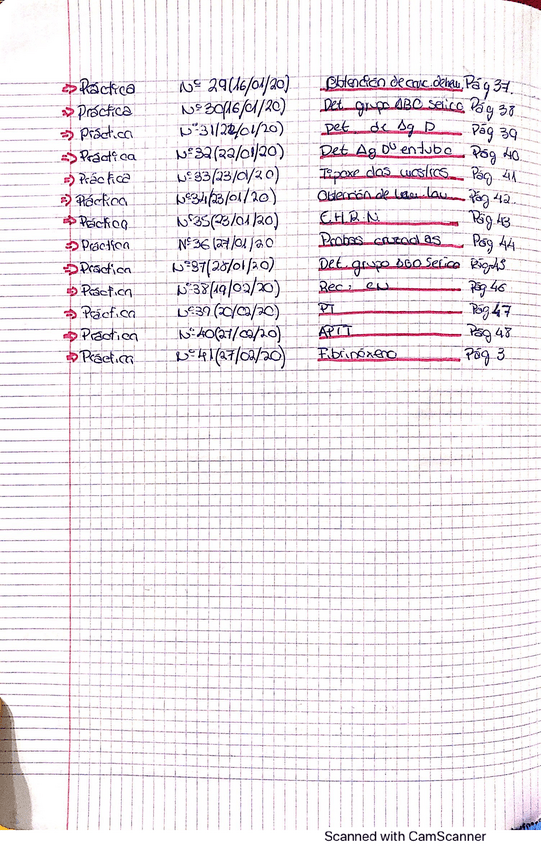 ⇒ Práctica Nº 29(16/01/20) Obtención de conc. Pág 37.
⇒ Práctica Nº 30(16/01/20) Det. grupo ABO sérico Pág 38
⇒ Práctica Nº 31(22/01/20) Det de Ag D Pág 39
⇒ Práctica Nº 32(22/01/20) Det Ag Dᵘ en tubo Pág 40
⇒ Práctica Nº 33(23/01/20) Tipaxe das Pág 41
⇒ Práctica Nº 34(23/01/20) Obtención de Pág 42
⇒ Práctica Nº 35(23/01/20) E.H.R.N. Pág 43
⇒ Práctica Nº 36(27/01/20 Probas cruzadas Pág 44
⇒ Práctica Nº 37(28/01/20) Det. grupo ABO Sérico Pág 45
⇒ Práctica Nº 38(19/02/20) Rec. Pág 46
⇒ Práctica Nº 39(20/02/20) PT Pág 47
⇒ Práctica Nº 40(27/02/20) APTT Pág 48
⇒ Práctica Nº 41(27/02/20) Fibrinóxeno Pág 3
Scanned with CamScanner